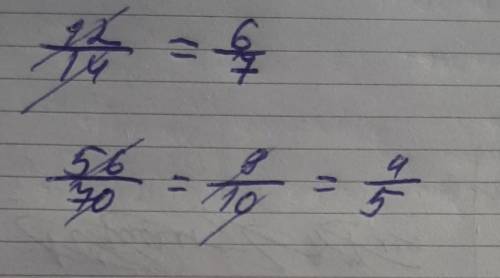 12/14 = 6/7
56/70 = 8/10 = 4/5